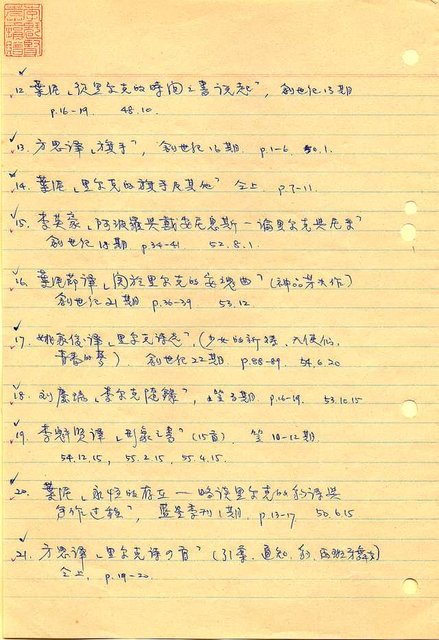 12. 葉泥「從里爾克的時間之書談起」, 創世紀13期
p.16-19. 48.10.
13. 方思譯「旗手」, 創世紀16期 p.1-6. 50.1.
14. 葉泥「里爾克的旗手及其他」仝上 p.7-11.
15. 李英豪「阿波羅與戴安尼息斯—論里爾克與尼采」
創世紀18期 p.34-41 52.8.1.
16. 葉泥節譯「関於里爾克的安魂曲」(神品
創世紀21期 p.36-39 53.12
17. 姚家俊譯「里爾克詩志」, (少女的祈禱, 天使們,
青春的夢). 創世紀22期 p.88-89. 54.6.20
18. 刘慶瑞「李尔克隨錄」, 笠3期 p.16-19. 53.10.15
19. 李魁賢譯「形象之書」(15首). 笠10-12期.
54.12.15, 55.2.15, 55.4.15.
20. 葉泥「永恒的存立—略談里爾克的詩與
創作过程」, 藍星季刊1期. p.13-17 50.6.15
21. 方思譯「里爾克詩7首」(引華, 通知, 豹, 西班牙舞女)
仝上, p.19-20.